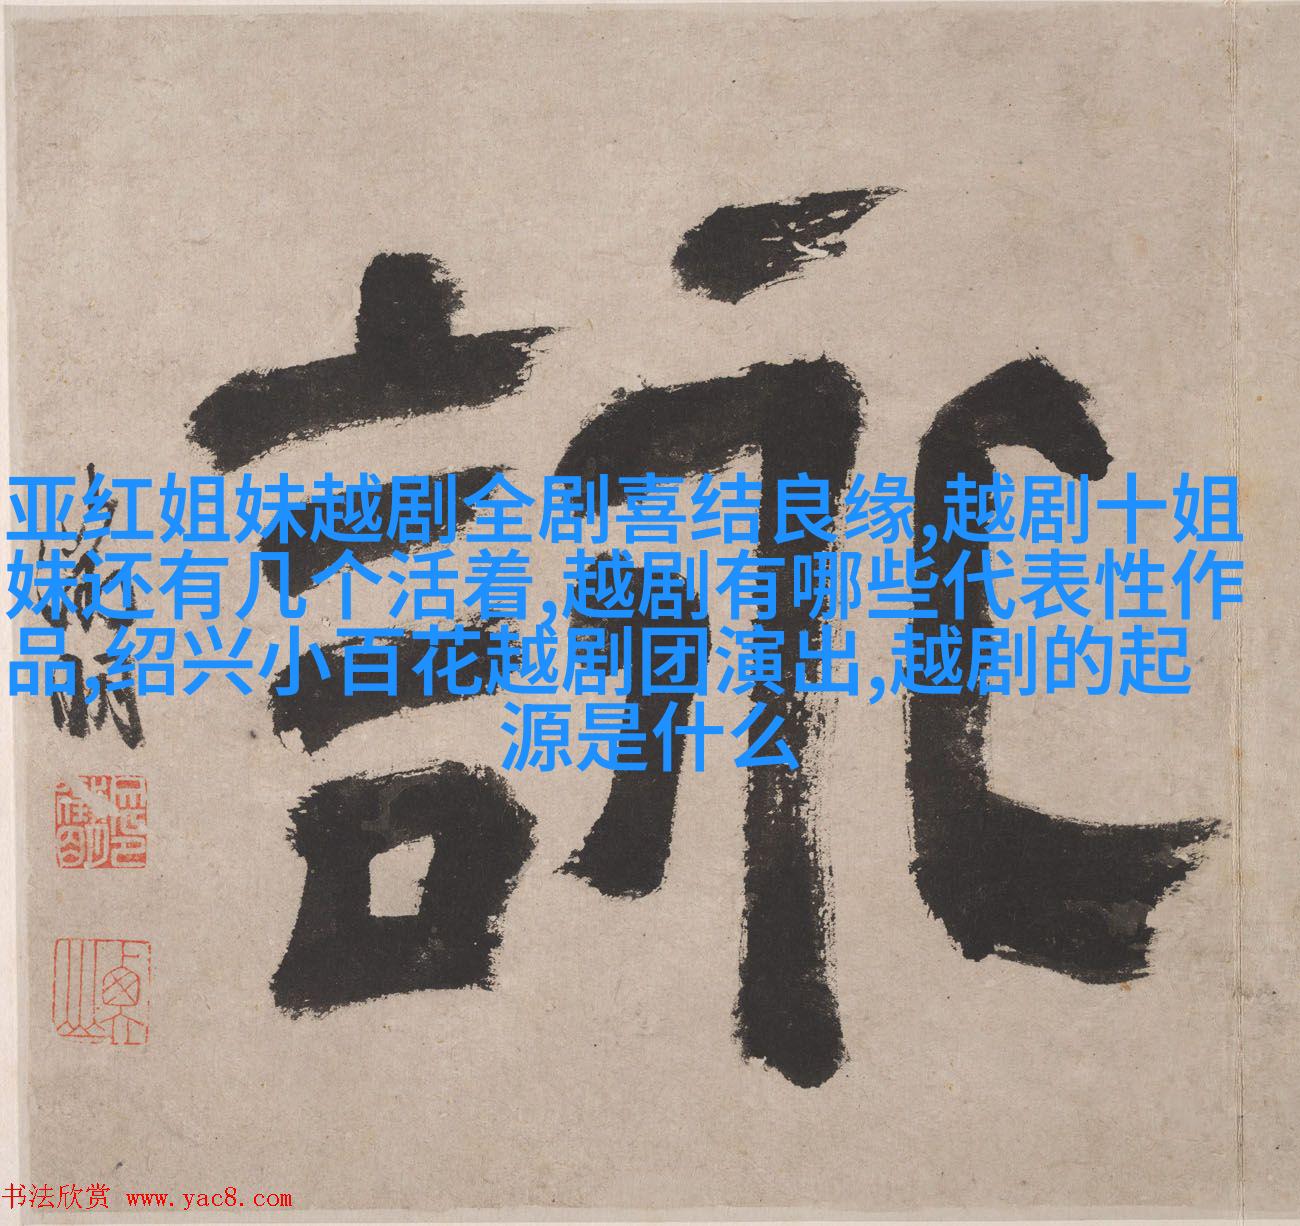 詠
亚红姐妹越剧全剧喜结良缘,越剧十姐
妹还有几个活着,越剧有哪些代表性作
品,绍兴小百花越剧团演出,越剧的起
源是什么
书法欣赏 www.yac8.com